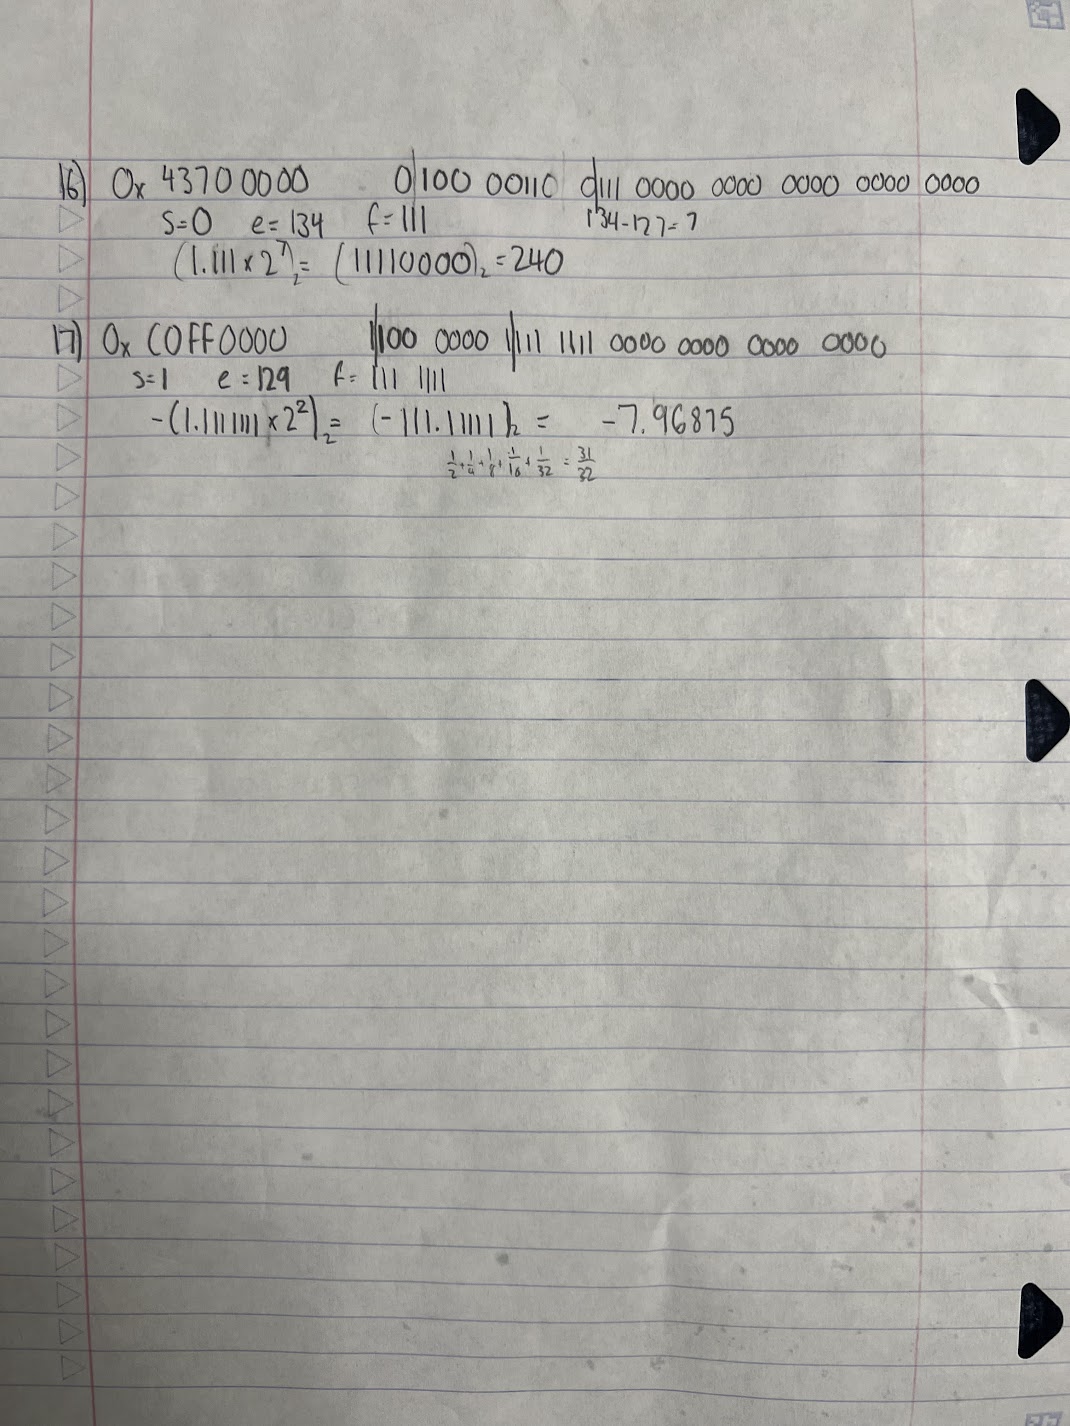 16) 0x 43700000 0|100 00110 0|111 0000 0000 0000 0000 0000
S=0 e=134 f=111 134-127=7
(1.111 x 2^7)₂= (11110000)₂ = 240
17) 0x C0FF0000 1|100 0000 1|111 1111 0000 0000 0000 0000
S=1 e=129 f= 111 1111
-(1.1111111 x 2²)₂= (-111.11111)₂ = -7.96875
1/2+1/4+1/8+1/16+1/32 = 31/32